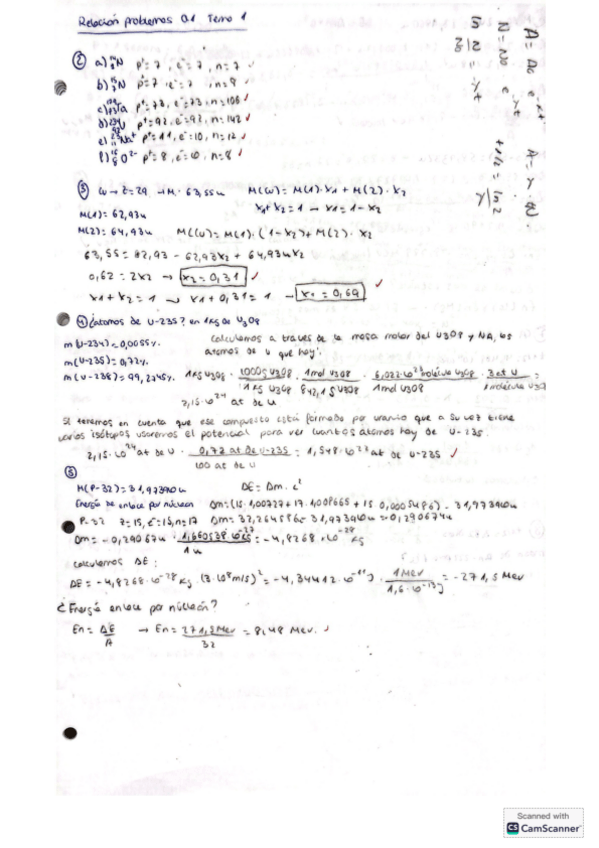 Relación problemas 0.1 Tema 1
② a) ¹⁴₇N p⁺=7, e⁻=7, n=7 ✓
b) ¹⁵₇N p⁺=7, e⁻=7, n=8 ✓
c) Ta p⁺=73, e⁻=73, n=108 ✓
d) ²³⁴₉₂U p⁺=92, e⁻=92, n=142 ✓
e) ²³₁₁Na⁺ p⁺=11, e⁻=10, n=12 ✓
f) ¹⁶₈O²⁻ p⁺=8, e⁻=10, n=8 ✓
③ Cu → Z=29 → M= 63,55u M(Cu)= M(1)·x₁ + M(2)·x₂
M(1)= 62,93u x₁+x₂=1 → x₁=1-x₂
M(2)= 64,93u M(Cu)= M(1)·(1-x₂)+M(2)·x₂
63,55= 62,93 - 62,93x₂ + 64,93x₂
0,62=2x₂ → x₂=0,31 ✓
x₁+x₂=1 → x₁+0,31=1 → x₁=0,69 ✓
④ ¿átomos de U-235? en 1kg de U₃O₈
calculamos a través de la masa molar del U₃O₈ y NA, los
átomos de U que hay:
m(U-234)=0,0055%
m(U-235)=0,72%
m(U-238)=99,2745%
1kg U₃O₈ · 1000g U₃O₈ / 1kg U₃O₈ · 1mol U₃O₈ / 842,1g U₃O₈ · 6,022·10²³ molécula U₃O₈ / 1mol U₃O₈ · 3 at U / 1 molécula U₃O₈ =
2,15·10²⁴ at de U
Si tenemos en cuenta que ese compuesto está formado por uranio que a su vez tiene
varios isótopos usaremos el potencial para ver cuantos átomos hay de U-235.
2,15·10²⁴ at de U · 0,72 at de U-235 / 100 at de U = 1,548·10²² at de U-235 ✓
⑤
M(P-32)=31,97390u ΔE= Δm·c²
Energía de enlace por nucleón Δm=(15·1,00727+17·1,008665+15·0,0005486) - 31,97390u
P-32 Z=15, e⁻=15, n=17 Δm= 32,264586 - 31,97390u=0,29067u
Δm= -0,29067u · 1,660538·10⁻²⁷kg / 1u = -4,8268·10⁻²⁸ kg
calculamos ΔE:
ΔE= -4,8268·10⁻²⁸ kg (3·10⁸m/s)² = -4,34412·10⁻¹¹J · 1Mev / 1,6·10⁻¹³J = -271,5 Mev
¿Energía enlace por nucleón?
En= ΔE / A → En= 271,5Mev / 32 = 8,48 Mev. ✓
Scanned with
CS CamScanner